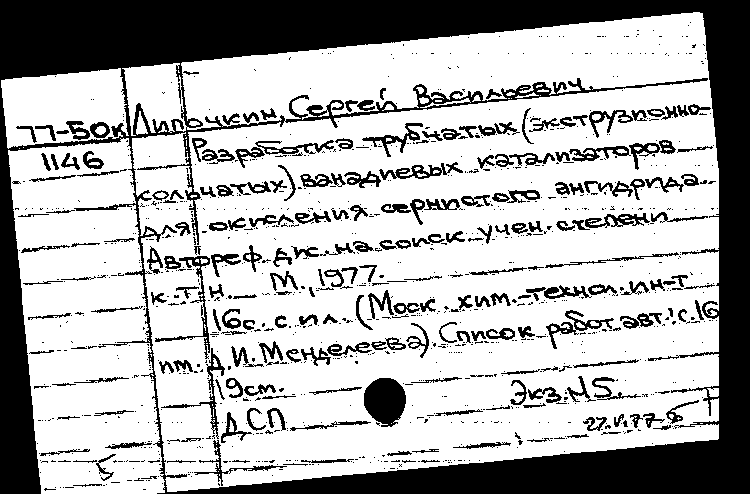 77-БОк Липочкин, Сергей Васильевич.
1146 Разработка трубчатых (экструзионно-
кольчатых) ванадиевых катализаторов
для окисления сернистого ангидрида.
Автореф. дис. на соиск. учен. степени
к.т.н. М., 1977.
16с. с ил. (Моск. хим.-технол. ин-т
им. Д.И. Менделеева). Список работ авт.: с.16
19см.
Экз. №5.
ДСП.
22.VI.77
5